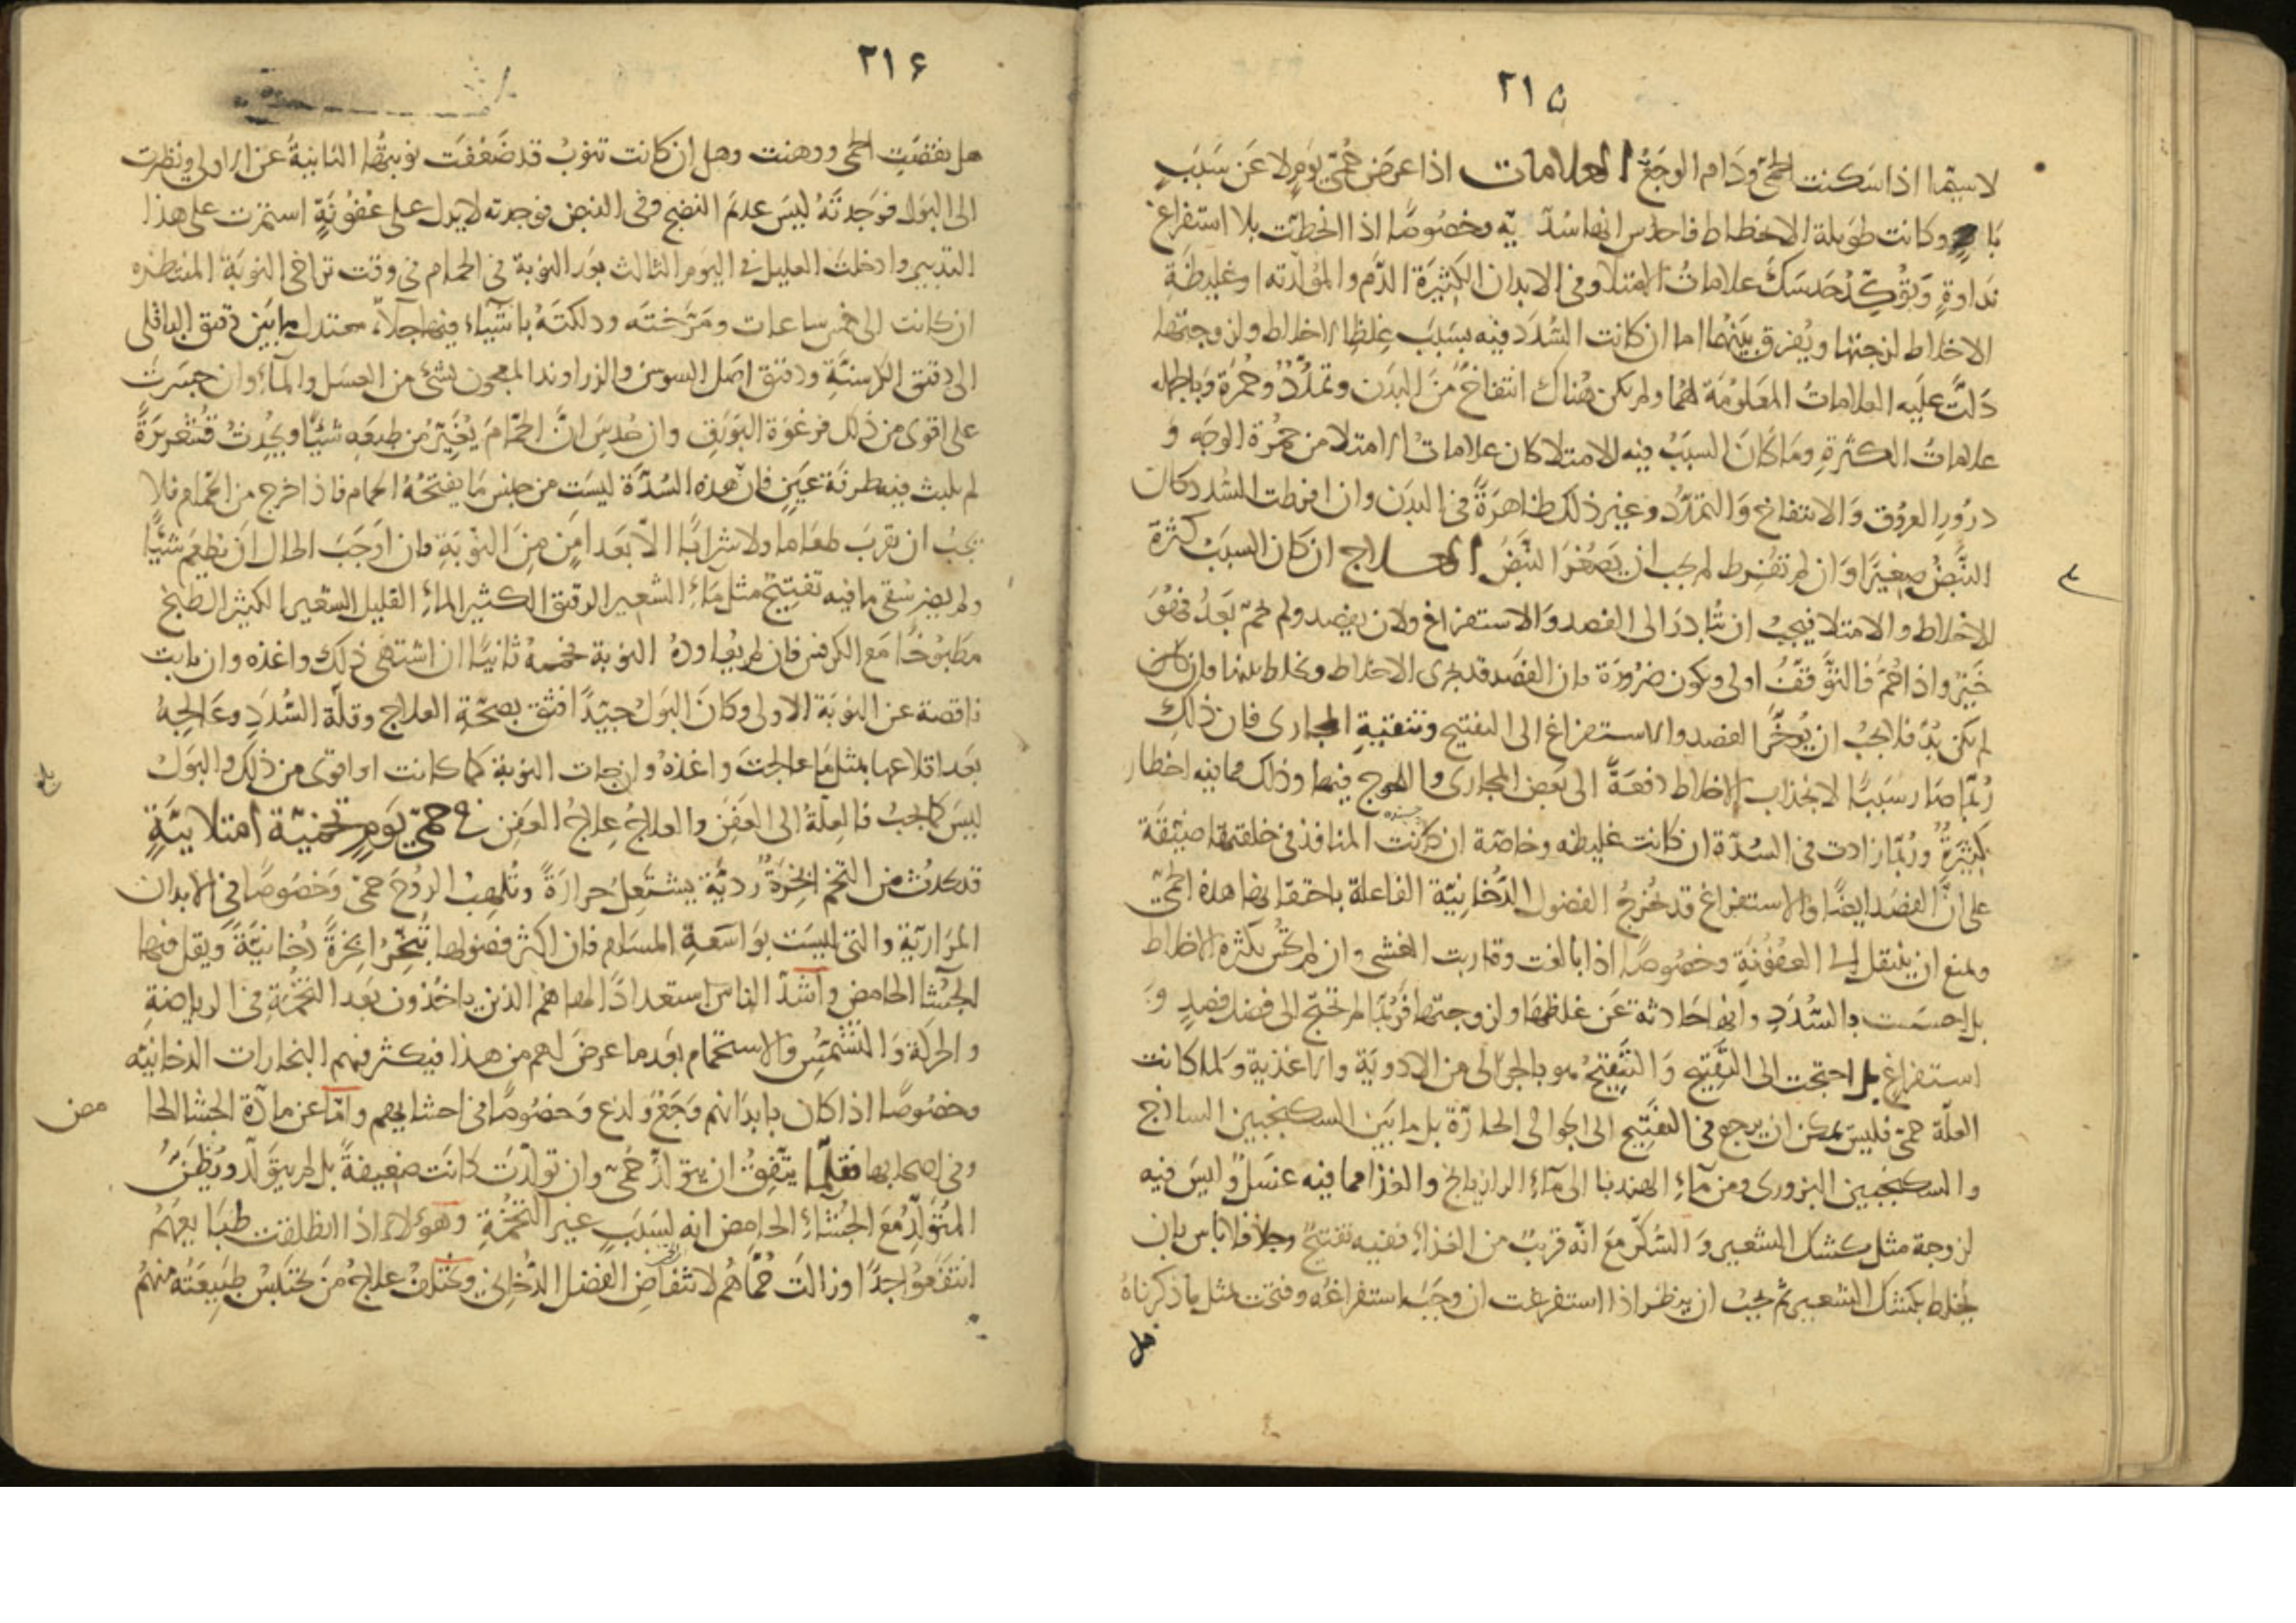 ٢١٥
لا سيما اذا سكنت الحمى ودام الوجع العلامات اذا عرض حمى يوم لا عن سبب
باد وكانت طويلة الانحطاط فاحدس انها سددية وخصوصا اذا انحطت بلا استفراغ
نداوة ويؤكد حدسك علامات الامتلا وفى الابدان الكثيرة الدم والمولدته وغليظة
الاخلاط لزجتها ويفرق بينهما اما ان كانت السدد فيه بسبب غلظ الاخلاط ولزوجتها
دلت عليه العلامات المعلومة لهما ولم يكن هناك انتفاخ من البدن وتمدد وحمرة وبالجملة
علامات الكثرة وما كان السبب فيه الامتلا كان علامات الامتلا من حمرة الوجه و
درور العروق والانتفاخ والتمدد وغير ذلك ظاهرة فى البدن وان افرطت السدد كان
النبض صغيرا وان لم تفرط لم يجب ان يصغر النبض العلاج ان كان السبب كثرة
الاخلاط والامتلا فيجب ان تبادر الى الفصد والاستفراغ ولان يفصد ولم يحم بعد فهو
خير واذا حم فالتوقف اولى ويكون ضرورة فان الفصد قد يجرى الاخلاط ويخلط بينها وان كان
لم يكن بد فلا يجب ان يؤخر الفصد والاستفراغ الى التفتيح وتنقية المجارى فان ذلك
ربما صار سببا لانجذاب الاخلاط دفعة الى بعض المجارى واللحوج فيها وذلك مما فيه اخطار
كثيرة وربما زادت فى السدة ان كانت غليظه وخاصة ان كانت المنافذ فى خلقتها ضيقة
على ان الفصد ايضا والاستفراغ قد يخرج الفضول الدخانية الفاعلة باحتقانها هذه الحمى
ويمنع ان ينتقل الى العفونة وخصوصا اذا بالغت وقاربت الغشى وان لم تحس بكثرة الاخلاط
بل احسست بالسدد وانها حادثة عن غلظها ولزوجتها فربما لم تحتج الى فضل فصد و
استفراغ بل احتجت الى التفتيح والتفتيح هو بالجوالى من الادوية والاغذية ولما كانت
العلة حمى فليس يمكن ان يرجع فى التفتيح الى الجوالى الحارة بل ما بين السكنجبين الساذج
والسكنجبين البزورى ومن ماء الهندبا الى ماء الرازيانج والغذا مما فيه غسل وليس فيه
لزوجة مثل كشك الشعير والسكر مع انه قريب من الغذاء ففيه تفتيح وجلا فلا باس بان
يخلط بكشك الشعير ثم يجب ان ينظر اذا استفرغت ان وجب استفراغه وفتحت بمثل ما ذكرناه
هل
٢١۶
هل نقصت الحمى ووهنت وهل ان كانت تنوب قد ضعفت نوبتها الثانية عن الاولى ونظرت
الى البول فوجدته ليس عديم النضج وفى النبض فوجدته لا يدل على عفونة استمرت على هذا
التدبير وادخلت العليل فى اليوم الثالث بعد النوبة فى الحمام فى وقت تراخى النوبة المنتظره
ان كانت الى خمس ساعات ومرخته ودلكته باشياء فيها جلاء معتدل ما بين دقيق الباقلى
الى دقيق الكرسنة ودقيق اصل السوسن والزراوند المعجون بشئ من العسل والماء وان جسرت
على اقوى من ذلك فرغوة البورق وان حدس ان الحمام يغير من طبعه شيئا ويحدث قشعريرة
لم يلبث فيه طرفة عين فان هذه السدة ليست من جنس ما يفتحه الحمام فاذا خرج من الحمام فلا
يجب ان تقرب طعاما ولا شرابا الا بعد امن من النوبة فان اوجب الحال ان يطعم شيئا
ولم يضر سقى ما فيه تفتيح مثل ماء الشعير الرقيق الكثير الماء القليل الشعير الكثير الطبخ
مطبوخا مع الكرفس فان لم يعاوده النوبة فحممه ثانيا ان اشتهى ذلك واغذه وان نابت
ناقصة عن النوبة الاولى وكان البول جيدا فثق بصحة العلاج وقلة السدد وعالجه
بعد اقلاعها بمثل ما عالجت واغذه وان جات النوبة كما كانت او اقوى من ذلك والبول
ليس كما يجب فالعلة الى العفن والعلاج علاج العفن فى حمى يوم تخمية امتلايية
قد يحدث من التخم ابخرة ردية يشتعل حرارة وتلهب الروح حمى وخصوصا فى الابدان
المرارية والتى ليست بواسعة المسام فان اكثر فضولها تبخر ابخرة دخانية ويقل فيها
الجشا الحامض واشد الناس استعدادا لها هم الذين ياخذون بعد التخمة فى الرياضة
والحركة والتشمس والاستحمام بعد ما عرض لهم من هذا فيكثر فيهم البخارات الدخانيه
وخصوصا اذا كان بابدانهم وجع ولذع وخصوصا فى احشايهم واما عن مادة الجشا الحا
مض
وفى اصحابها فقلما يتفق ان يتولد حمى وان تولدت كانت ضعيفة بل لم يتولد ويظن
المتولد مع الجشاء الحامض انه لسبب غير التخمة وهولاء اذا انطلقت طبايعهم
انتفعوا جدا وزالت حماهم لانتفاض الفضل الدخانى ويختلف علاج من يحتبس طبيعته منهم